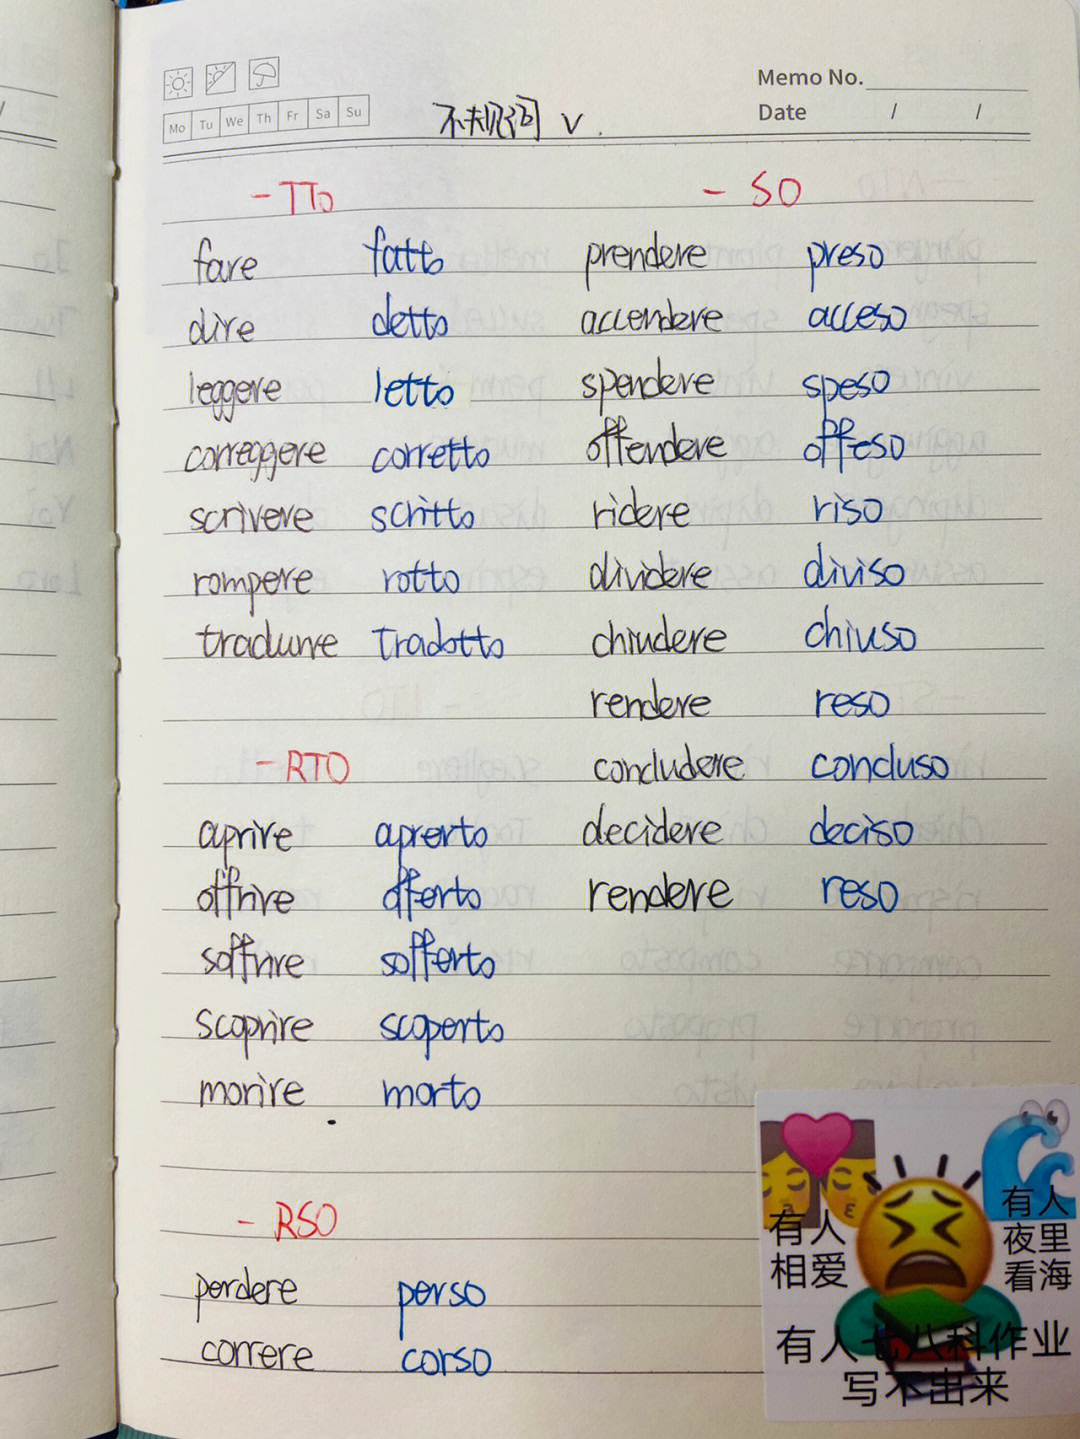 Memo No.
Mo Tu We Th Fr Sa Su
Date / /
不规词 v.
-TTO
fare fatto
dire detto
leggere letto
correggere corretto
scrivere scritto
rompere rotto
tradurre tradotto
-RTO
aprire aperto
offrire offerto
soffrire sofferto
scoprire scoperto
morire morto
- RSO
perdere perso
correre corso
- SO
prendere preso
accendere acceso
spendere speso
offendere offeso
ridere riso
dividere diviso
chiudere chiuso
rendere reso
concludere concluso
decidere deciso
rendere reso
有人
相爱
有人
夜里
看海
有人七八科作业
写不出来